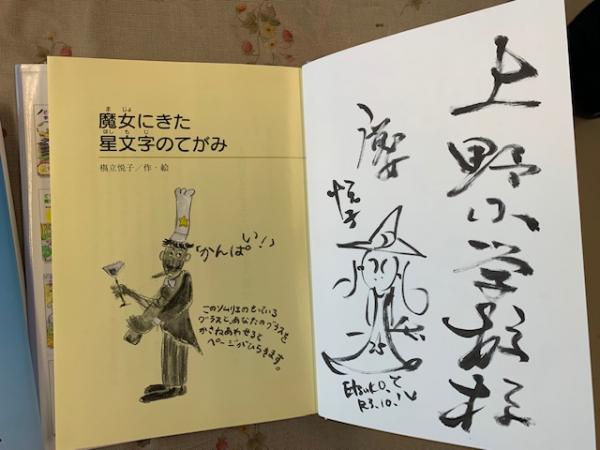 魔女にきた
星文字のてがみ
槝立悦子／作・絵
「かんぱーい！」
このソムリエのもっている
グラスと、あなたのグラスを
かさねあわせると
ページがひらきます。
上野小学校様
悦子
Etsuko.て
R3.10.